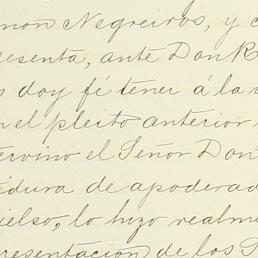 mon Negreiros, y c
resenta, ante Don R
s doy fé tener á la v
n el pleito anterior
ervino el Señor Don
idura de apoderad
uelso, lo hizo realme
presentacion de los S